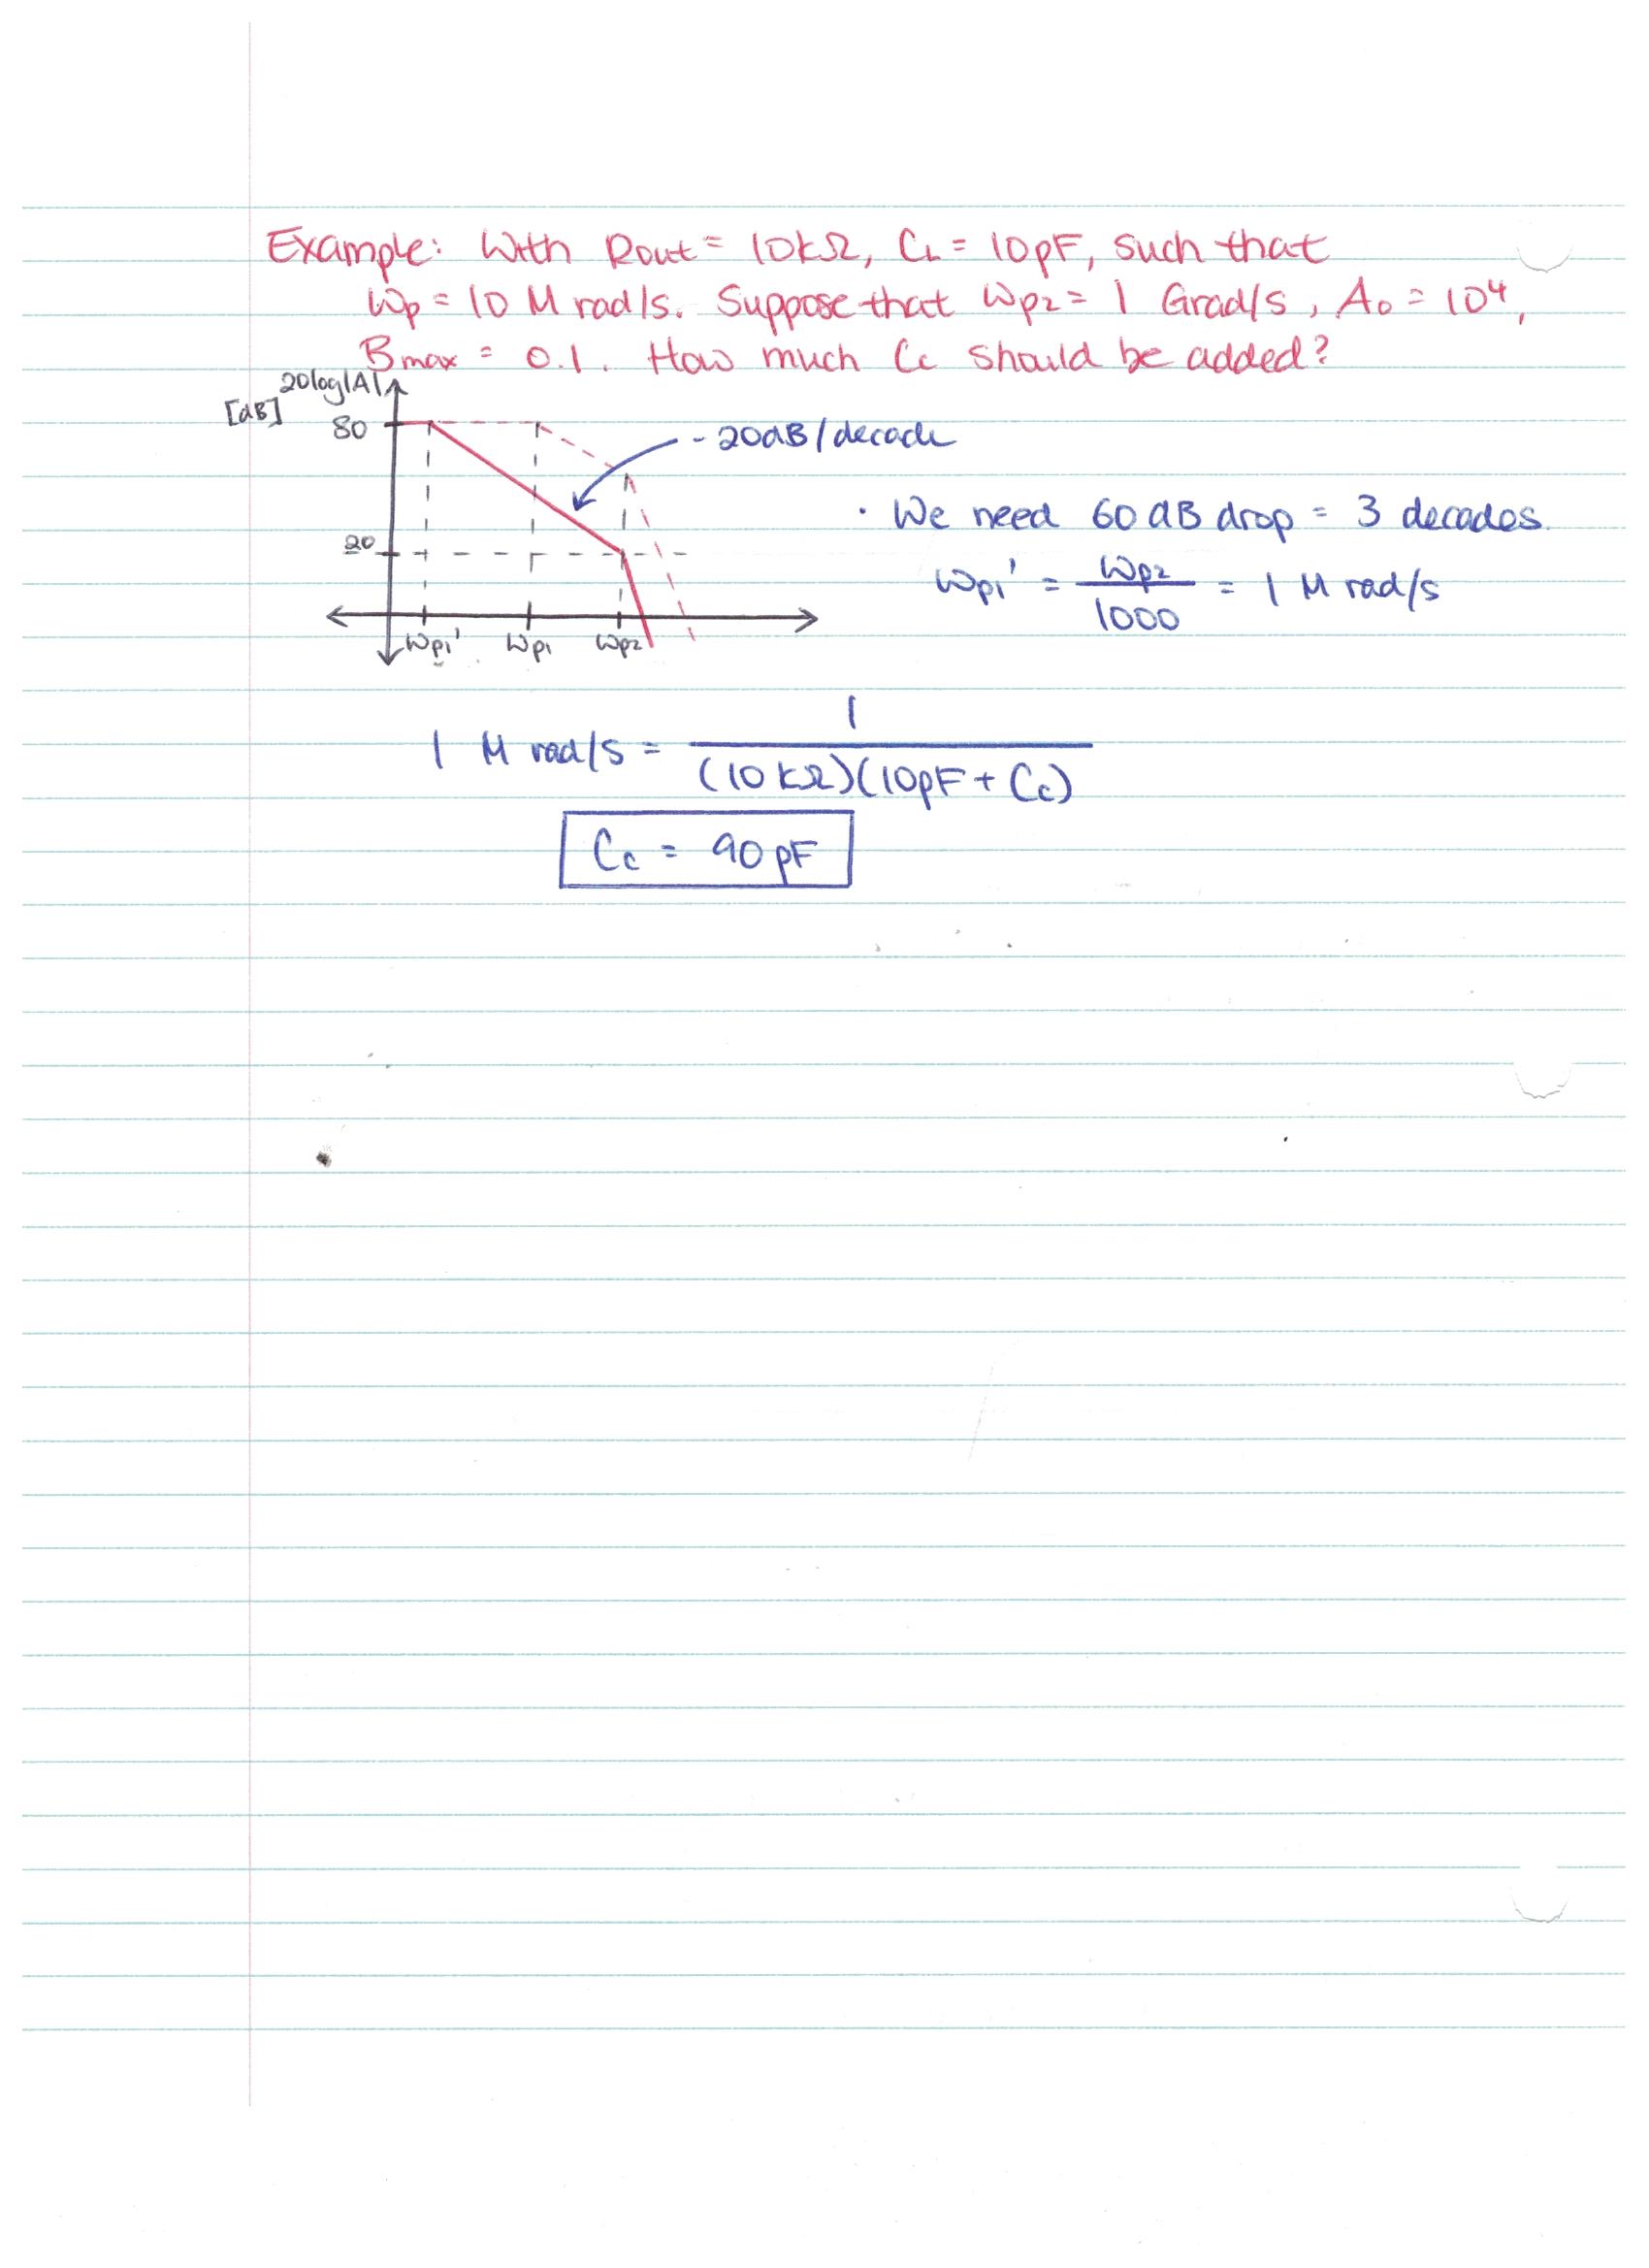 Example: With Rout = 10kΩ, CL = 10pF, such that
ωp = 10 M rad/s. Suppose that ωp2 = 1 Grad/s, Ao = 10⁴,
Bmax = 0.1. How much Cc should be added?
20log|A|
[dB]
80
-20dB/decade
· We need 60 dB drop = 3 decades.
20
ωp1' = ωp2/1000 = 1 M rad/s
ωp1' ωp1 ωp2
1 M rad/s = 1/(10kΩ)(10pF + Cc)
Cc = 90 pF